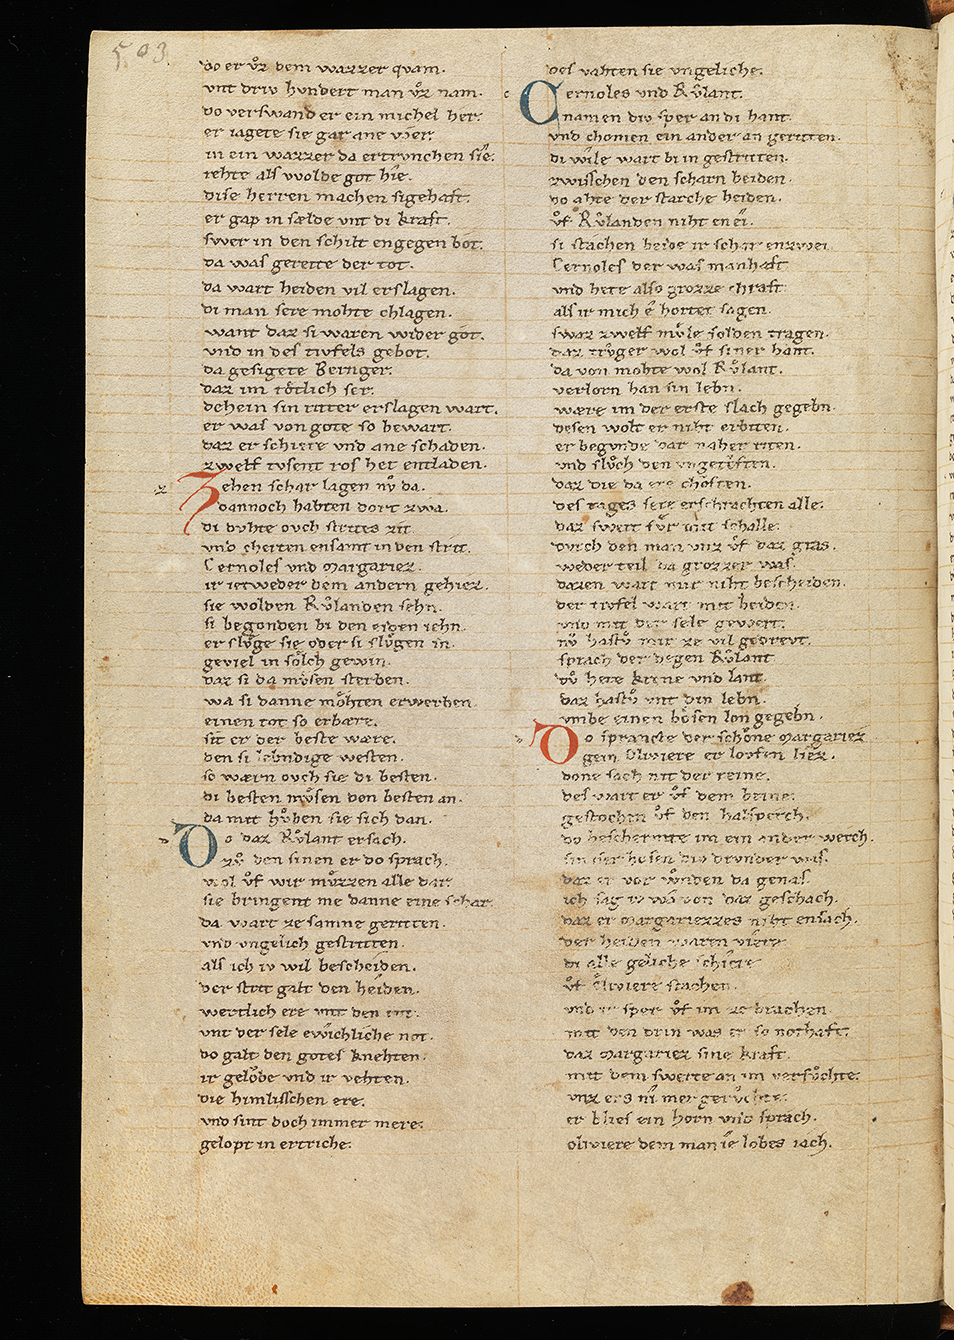 503.
do er uͦz dem wazzer quam.
vnt driv hvndert man uͦz nam.
do verswand er ein michel her.
er iagete sie gar ane wer.
in ein wazzer da ertrvnchen sie.
rehte als wolde got hie.
dise herren machen sigehaft.
er gap in sælde vnt di kraft.
swer in den schilt engegen bot.
da was gereite der tot.
da wart heiden vil erslagen.
di man sere mohte chlagen.
want daz si waren wider got.
vnd in des tivfels gebot.
da gesigete Beringer.
daz im toͤtlich ser.
dehein sin ritter erslagen wart.
er was von gote so bewart.
daz er schiere vnd ane schaden.
zwelf tvsent ros het entladen.
z Zehen schar lagen nv da.
dannoch habten dort zwa.
di dvhte ovch strites zit.
vnd cherten ensamt in den strit.
Cernoles vnd Margariez.
ir ietweder dem andern gehiez.
sie wolden Rvͦlanden sehn.
si begonden bi den eiden iehn.
er slvͤge sie oder si slvͤgen in.
geviel in soͤlch gewin.
daz si da mvͤsen sterben.
wa si danne moͤhten erwerben.
einen tot so erbære.
sit er der beste wære.
den si lebndige westen.
so wærn ovch sie di besten.
di besten mvͤsen von besten an.
da mit hvͦben sie sich dan.
Do daz Rvͦlant ersach.
zvͦ den sinen er do sprach.
wol uͦf wir mvͤzzen alle dar.
sie bringent me danne eine schar.
da wart ze samne geritten.
vnd vngelich gestritten.
als ich iv wil bescheiden.
der strit galt den heiden.
wertlich ere mit den
vnt der sele ewichliche not.
do galt den gotes knehten.
ir geloͤbe vnd ir vehten.
die himlisschen ere.
vnd sint doch immer mere.
gelopt in ertriche.
des vahten sie vngeliche.
c Cernoles vnd Rvͦlant.
namen div sper an di hant.
vnd chomen ein ander an geritten.
di wile wart bi in gestritten.
zwisschen den scharn beiden.
do ahte der starche heiden.
uͦf Rvͦlanden niht en ei.
si stachen beide ir schar enzwei
Cernoles der was manhaft
vnd hete also grozze chraft
als ir mich e hortet sagen.
swaz zwelf mvͤle solden tragen.
daz trvͤger wol uͦf siner hant.
da von mohte wol Rvͦlant.
verlorn han sin lebn.
wære im der erste slach gegebn.
desen wolt er niht erbiten.
er begvnde dar naher riten.
vnd slvͦch den vngetovften.
daz die da ere choͤften.
des slages sere erschrachten alle.
daz swert fvͦr mit schalle.
dvrch den man vnz uͦf daz gras.
weder teil da grozzer was.
dazen wart mir niht bescheiden.
der tivfel wart mit beiden
vnd mit der sele gewert.
nv hastv mir ze vil gedrevt.
sprach der degen Rvͦlant
dv here krone vnd lant.
daz hastv vnt din lebn.
vmbe einen boͤsen lon gegebn.
Do sprancte der schoͤne Margariez
gein Oliviere er lovfen liez.
done sach nit der reine.
des wart er uͦf dem beine.
gestochen uͦf den halsperch.
do beschermte im ein ander werch.
sin iser hosen div drvnder was.
daz er vor wnden da genas.
ich sag iv wa von daz geschach.
daz er Margariezzes niht ensach.
der heiden waren viere
di alle geliche schiere
uͦf Oliviere stachen.
vnd ir sper uͦf im ze brachen
mit den drin was er so nothaft.
daz Margariez sine kraft.
mit dem swerte an im versvͦchte.
vnz ers ni mer gervͦchte.
er blies ein horn vnd sprach.
oliviere dem man ie lobes iach.